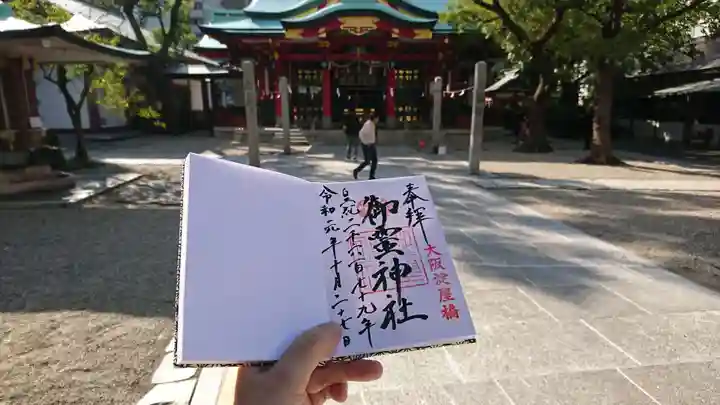 奉拝
大阪淀屋橋
御霊神社
皇紀二千六百七十九年
令和元年十月二十七日